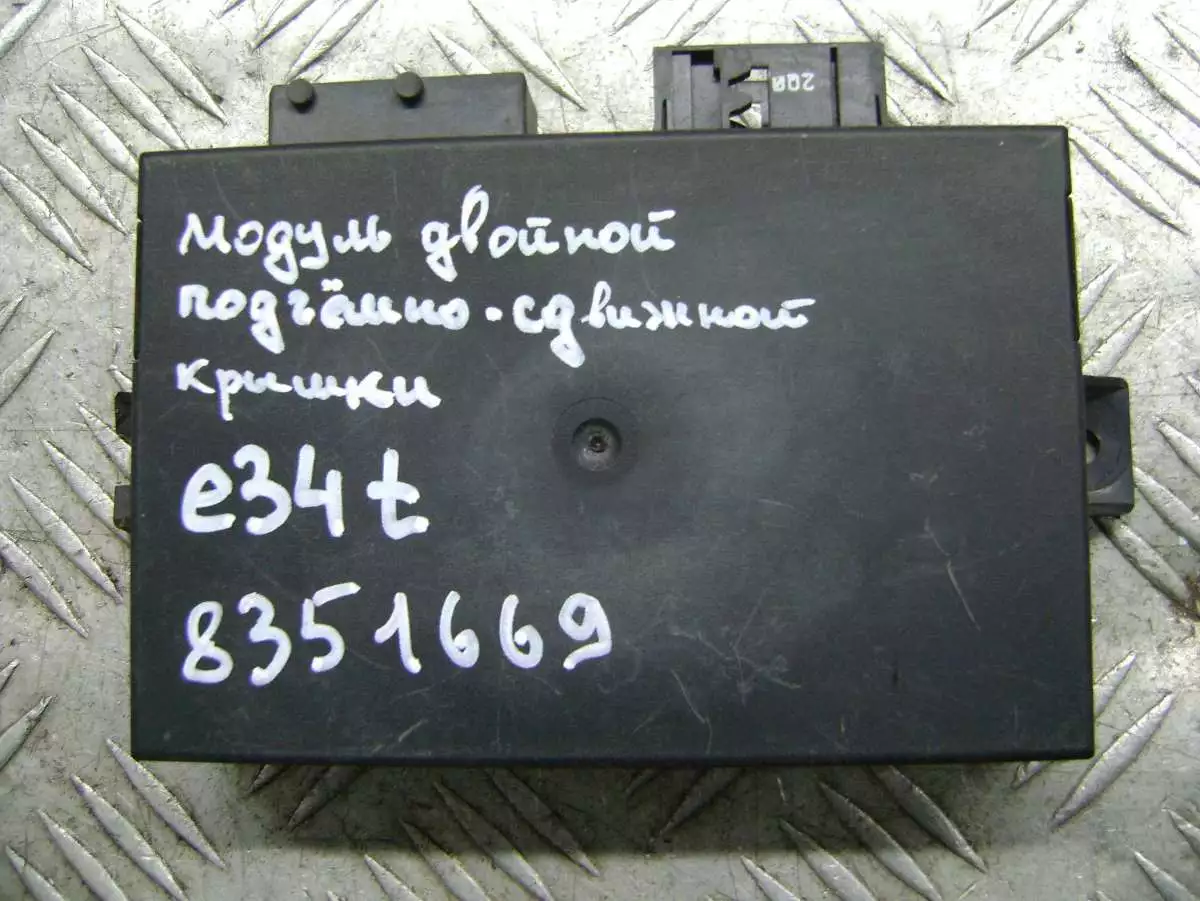 200
Модуль двойной
подъёмно-сдвижной
крышки
e34t
8351669